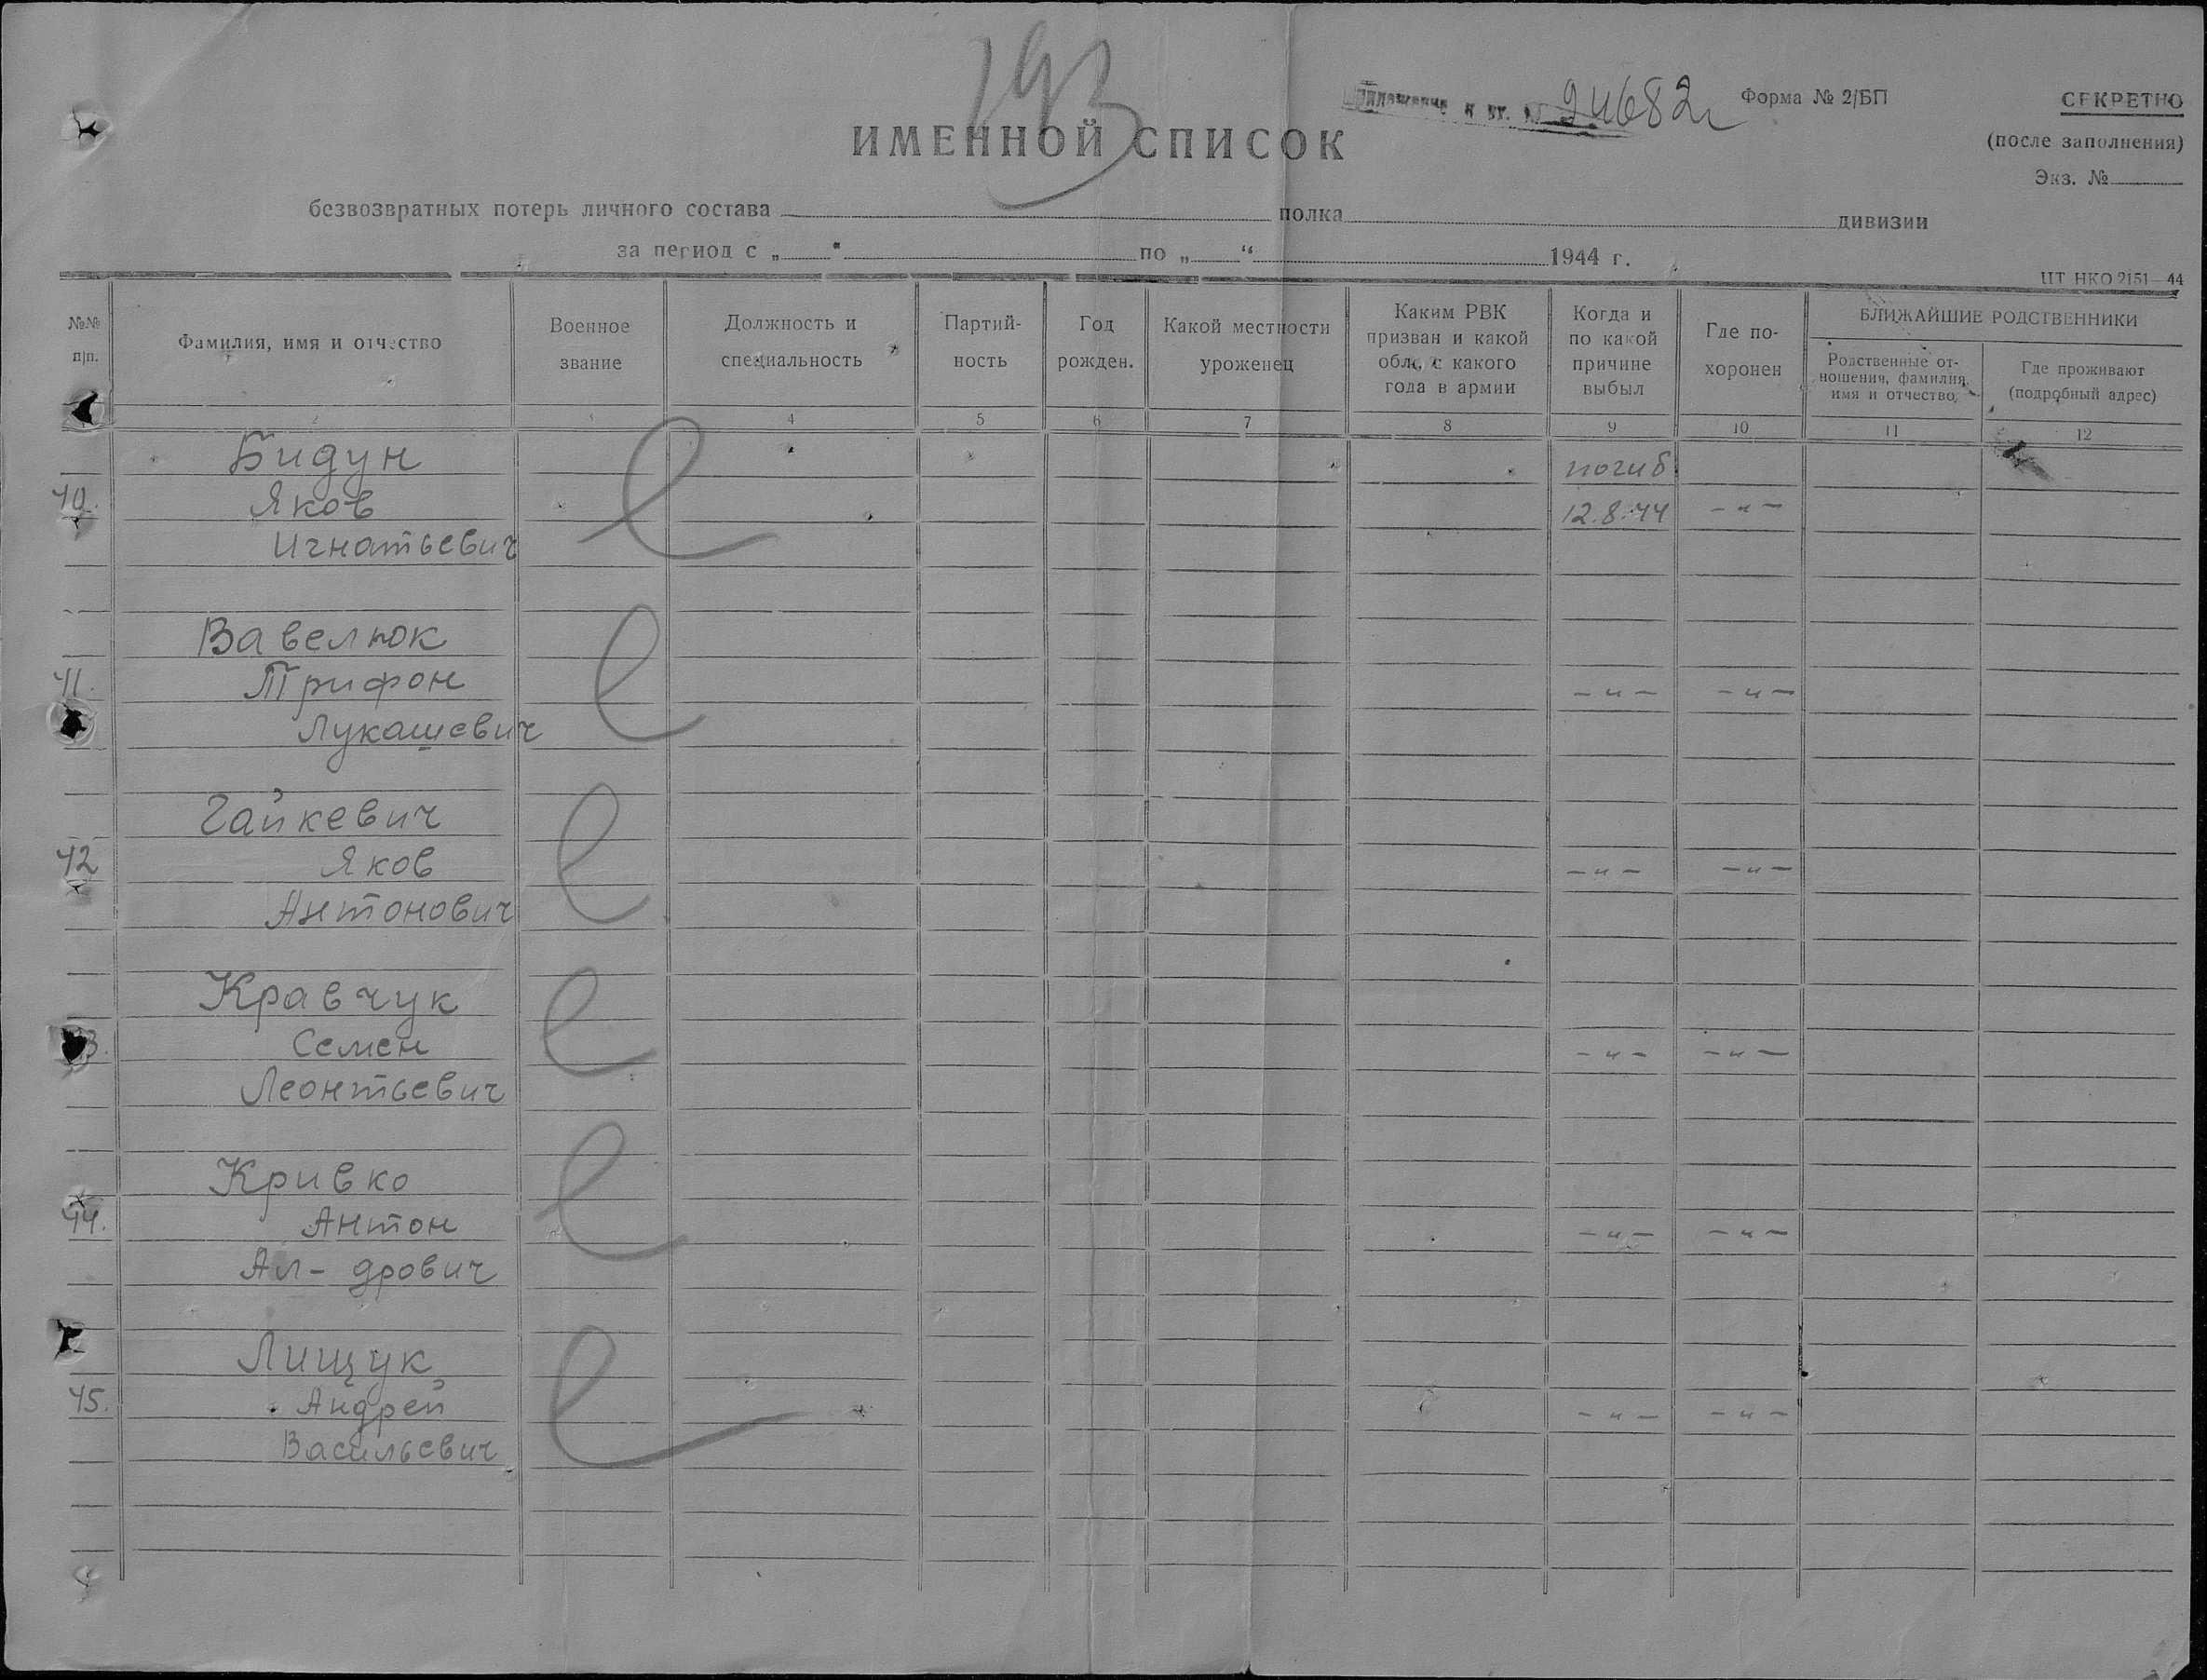 193
Приложение к вх. № 24682с Форма № 2/БП СЕКРЕТНО
ИМЕННОЙ СПИСОК
(после заполнения)
Экз. №
безвозвратных потерь личного состава полка дивизии
за период с „ “ по „ “ 1944 г.
ЦТ НКО 2151—44
№№ п/п.
Фамилия, имя и отчество
Военное звание
Должность и специальность
Партий-
ность
Год рожден.
Какой местности уроженец
Каким РВК
призван и какой
обл., с какого
года в армии
Когда и
по какой
причине
выбыл
Где по-
хоронен
БЛИЖАЙШИЕ РОДСТВЕННИКИ
Родственные от-
ношения, фамилия,
имя и отчество
Где проживают
(подробный адрес)
2 3 4 5 6 7 8 9 10 11 12
Бидун погиб
40. Яков 12.8.44 -〃-
Игнатьевич
Вавелюк
41. Трифон -〃- -〃-
Лукашевич
Гайкевич
42 Яков -〃- -〃-
Антонович
Кравчук
3. Семен -〃- -〃-
Леонтьевич
Кривко
44. Антон -〃- -〃-
Ал-дрович
Лищук
45. Андрей -〃- -〃-
Васильевич